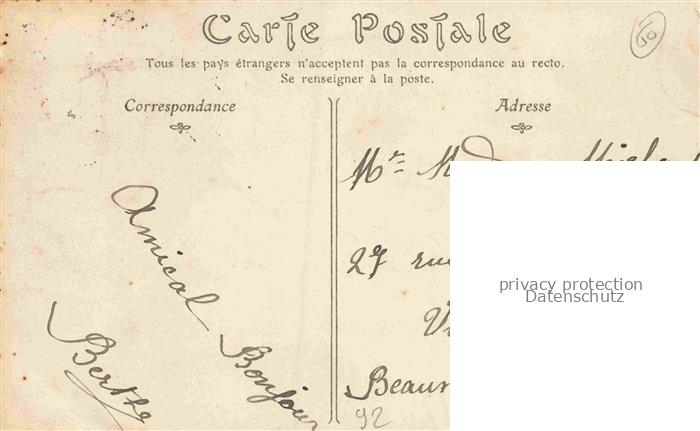 Carte Postale
60
Tous les pays étrangers n'acceptent pas la correspondance au recto.
Se renseigner à la poste.
Correspondance
Adresse
Amical Bonjour
Berthe
Mr
27 rue
92
privacy protection
Datenschutz